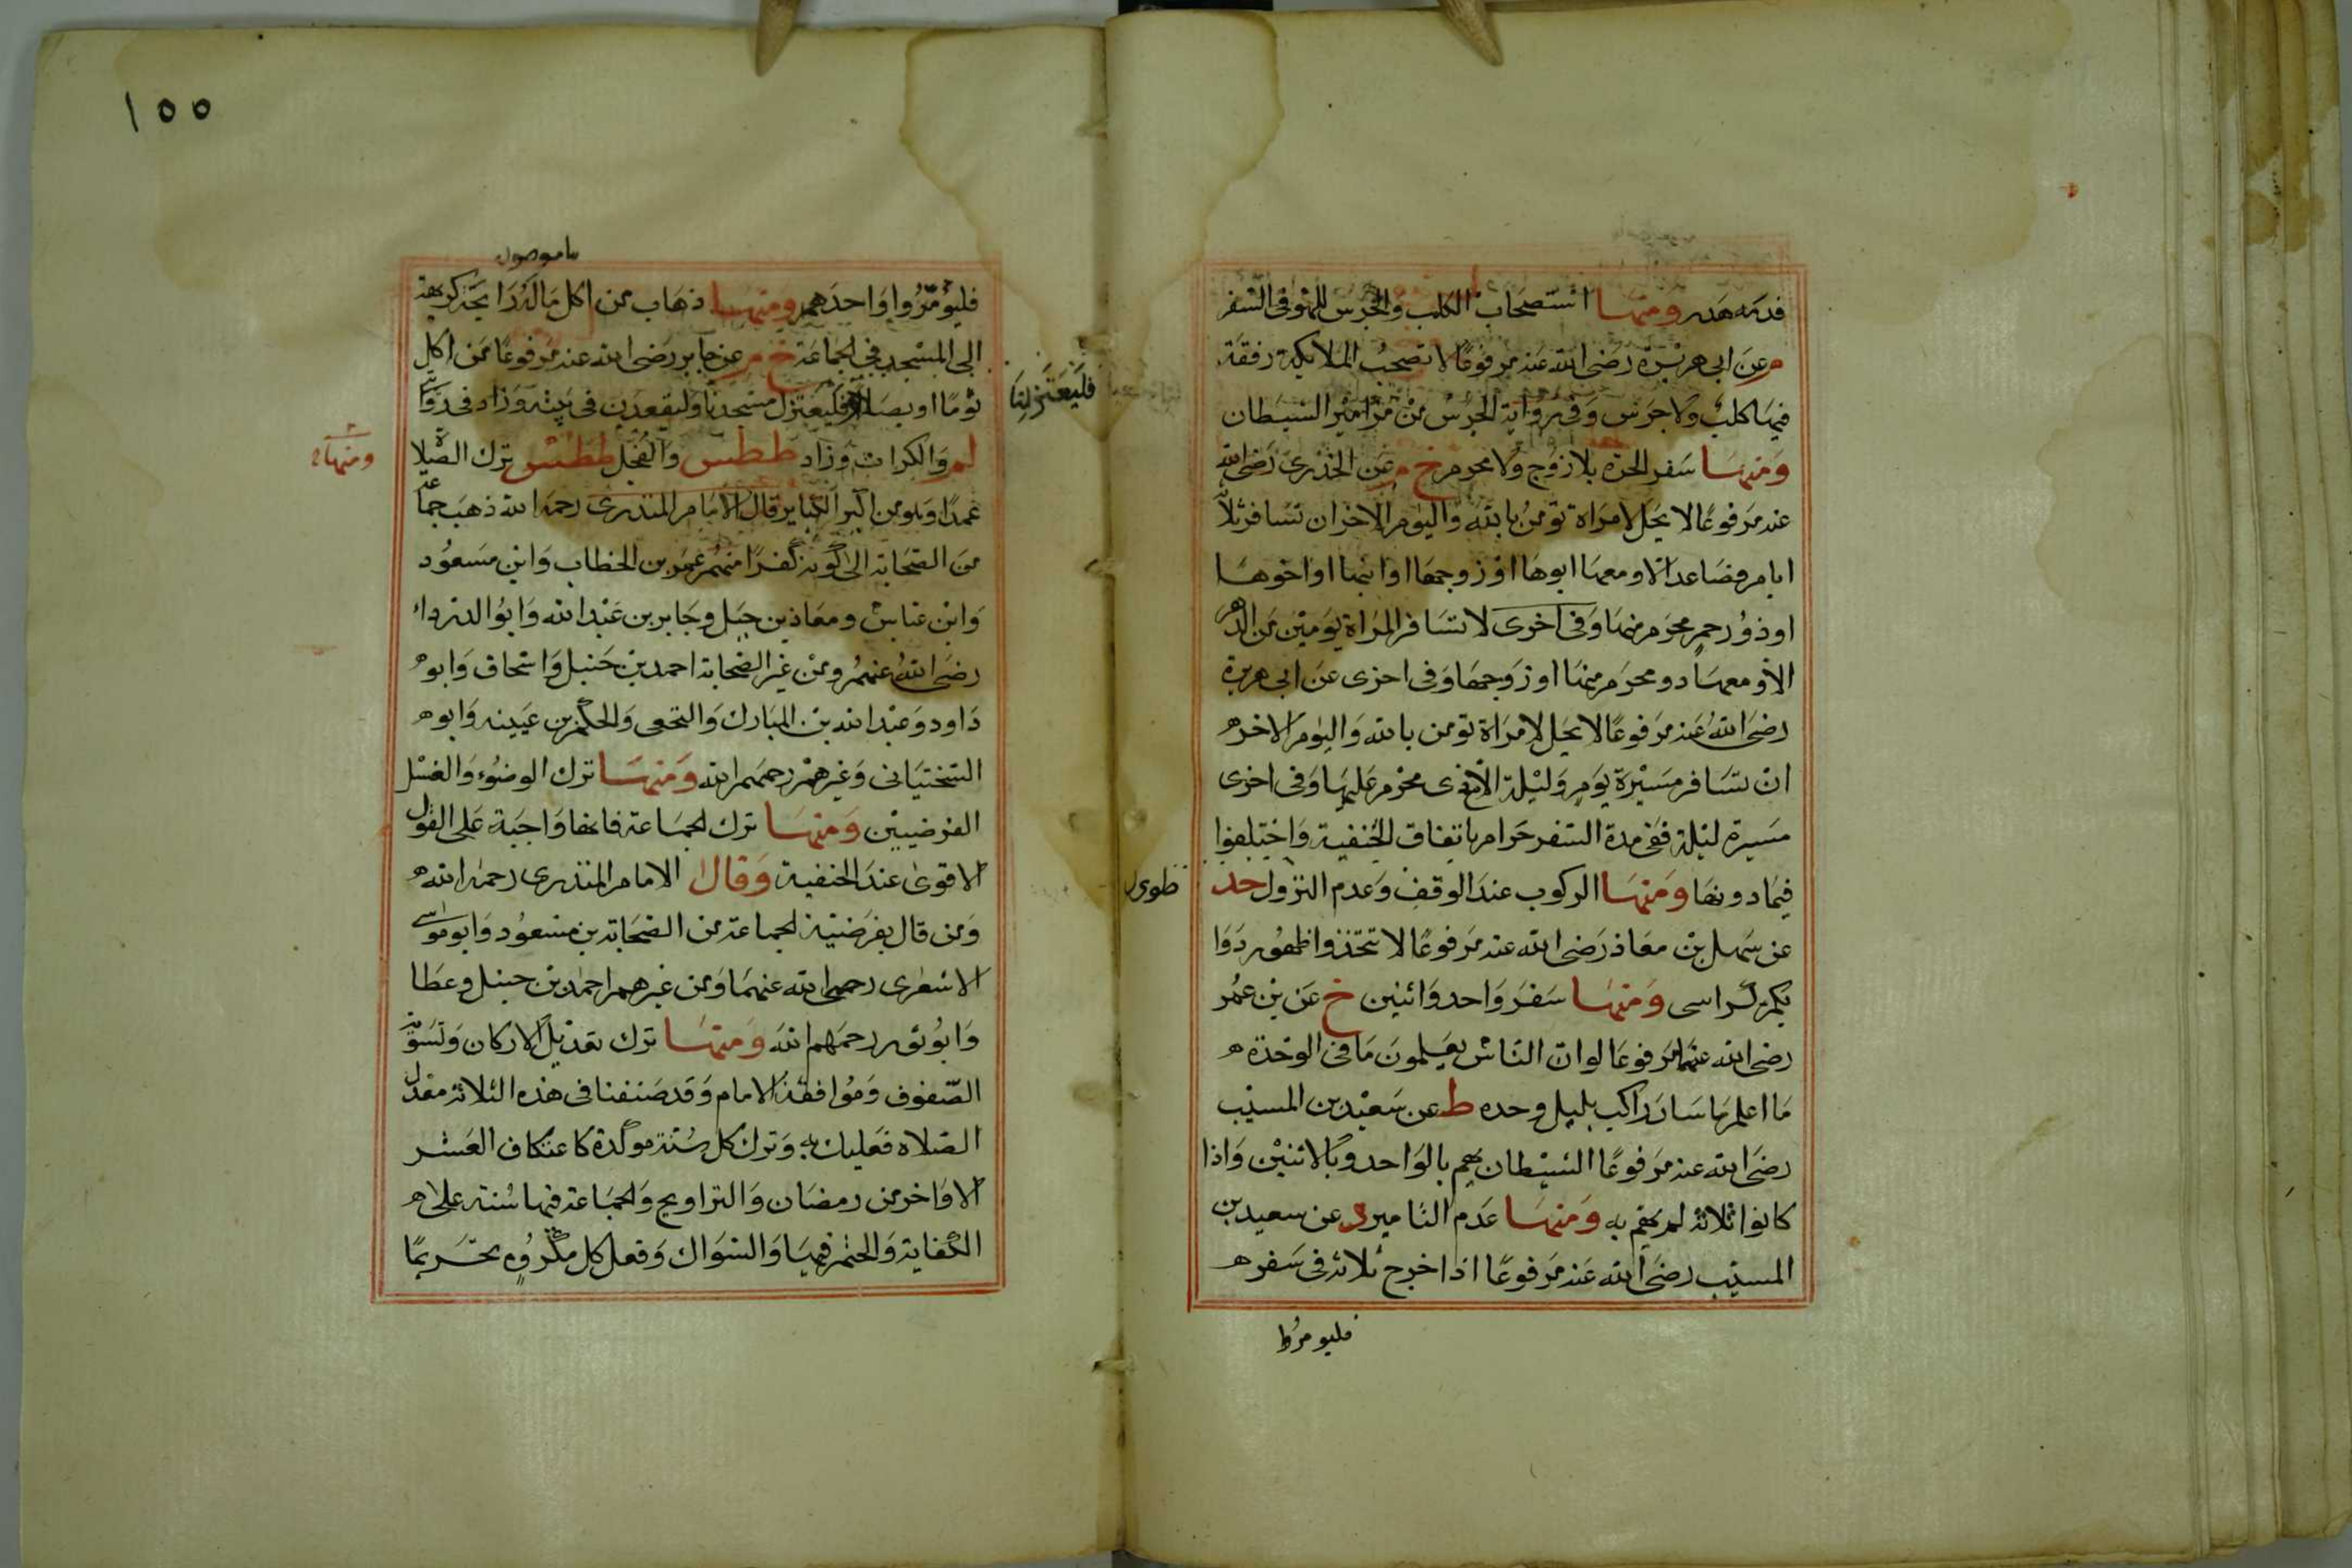 فدمه هدر ومنها استصحاب الكلب والجرس للهو في السفر
م عن ابي هريرة رضي الله عنه مرفوعا لا تصحب الملائكة رفقة
فيها كلب ولا جرس وفي رواية الجرس من مزامير الشيطان
ومنها سفر الحرة بلا زوج ولا محرم خ م عن الخدري رضي الله
عنه مرفوعا لا يحل لامراة تؤمن بالله واليوم الاخر ان تسافر ثلاثة
ايام فصاعدا الا ومعها ابوها او زوجها او ابنها او اخوها
او ذو رحم محرم منها وفي اخرى لا تسافر المراة يومين من الدهر
الا ومعها ذو محرم منها او زوجها وفي اخرى عن ابي هريرة
رضي الله عنه مرفوعا لا يحل لامراة تؤمن بالله واليوم الاخر
ان تسافر مسيرة يوم وليلة الا مع ذي محرم عليها وفي اخرى
مسيرة ليلة ففي مدة السفر حرام باتفاق الحنفية واختلفوا
فيما دونها ومنها الركوب عند الوقف وعدم النزول حد
عن سهل بن معاذ رضي الله عنه مرفوعا لا تتخذوا ظهور دوا
بكم كراسي ومنها سفر واحد واثنين خ عن بن عمر
رضي الله عنهما مرفوعا لو ان الناس يعلمون ما في الوحدة
ما اعلم ما سار راكب بليل وحده ط عن سعيد بن المسيب
رضي الله عنه مرفوعا الشيطان يهم بالواحد وبالاثنين واذا
كانوا ثلاثة لم يهم به ومنها عدم التامير د عن سعيد بن
المسيب رضي الله عنه مرفوعا اذا خرج ثلاثة في سفر
فليومروا
١٥٥
فليؤمروا واحدهم ومنها ذهاب من اكل ماله رايحة كريهة
الى المسجد في الجماعة خ م عن جابر رضي الله عنه مرفوعا من اكل
ثوما او بصلا فليعتزل مسجدنا وليقعد في بيته وزاد في رواية
فليعتزلنا
لم والكراث وزاد ططس والفجل ططس ترك الصلاة
ومنها
عمدا وهو من اكبر الكباير قال الامام المنذري رحمه الله ذهب جماعة
من الصحابة الى كونه كفرا منهم عمر بن الخطاب وابن مسعود
وابن عباس ومعاذ بن جبل وجابر بن عبد الله وابو الدرداء
رضي الله عنهم ومن غير الصحابة احمد بن حنبل واسحاق وابو
داود وعبد الله بن المبارك والنخعي والحكم بن عيينه وابو
السختياني وغيرهم رحمهم الله ومنها ترك الوضوء والغسل
الفرضيين ومنها ترك الجماعة فانها واجبة على القول
الاقوى عند الحنفية وقال الامام المنذري رحمه الله
ومن قال بفرضية الجماعة من الصحابة بن مسعود وابو موسى
الاشعرى رضي الله عنهما ومن غيرهم احمد بن حنبل وعطا
وابو ثور رحمهم الله ومنها ترك تعديل الاركان وتسوية
الصفوف وموافقة الامام وقد صنفنا في هذه الثلاثة معدل
الصلاه فعليك به وترك كل سنة موكدة كاعتكاف العشر
الاواخر من رمضان والتراويح والجماعة فيها سنة على
الكفاية والختم فيها والسواك وفعل كل مكروه تحريما